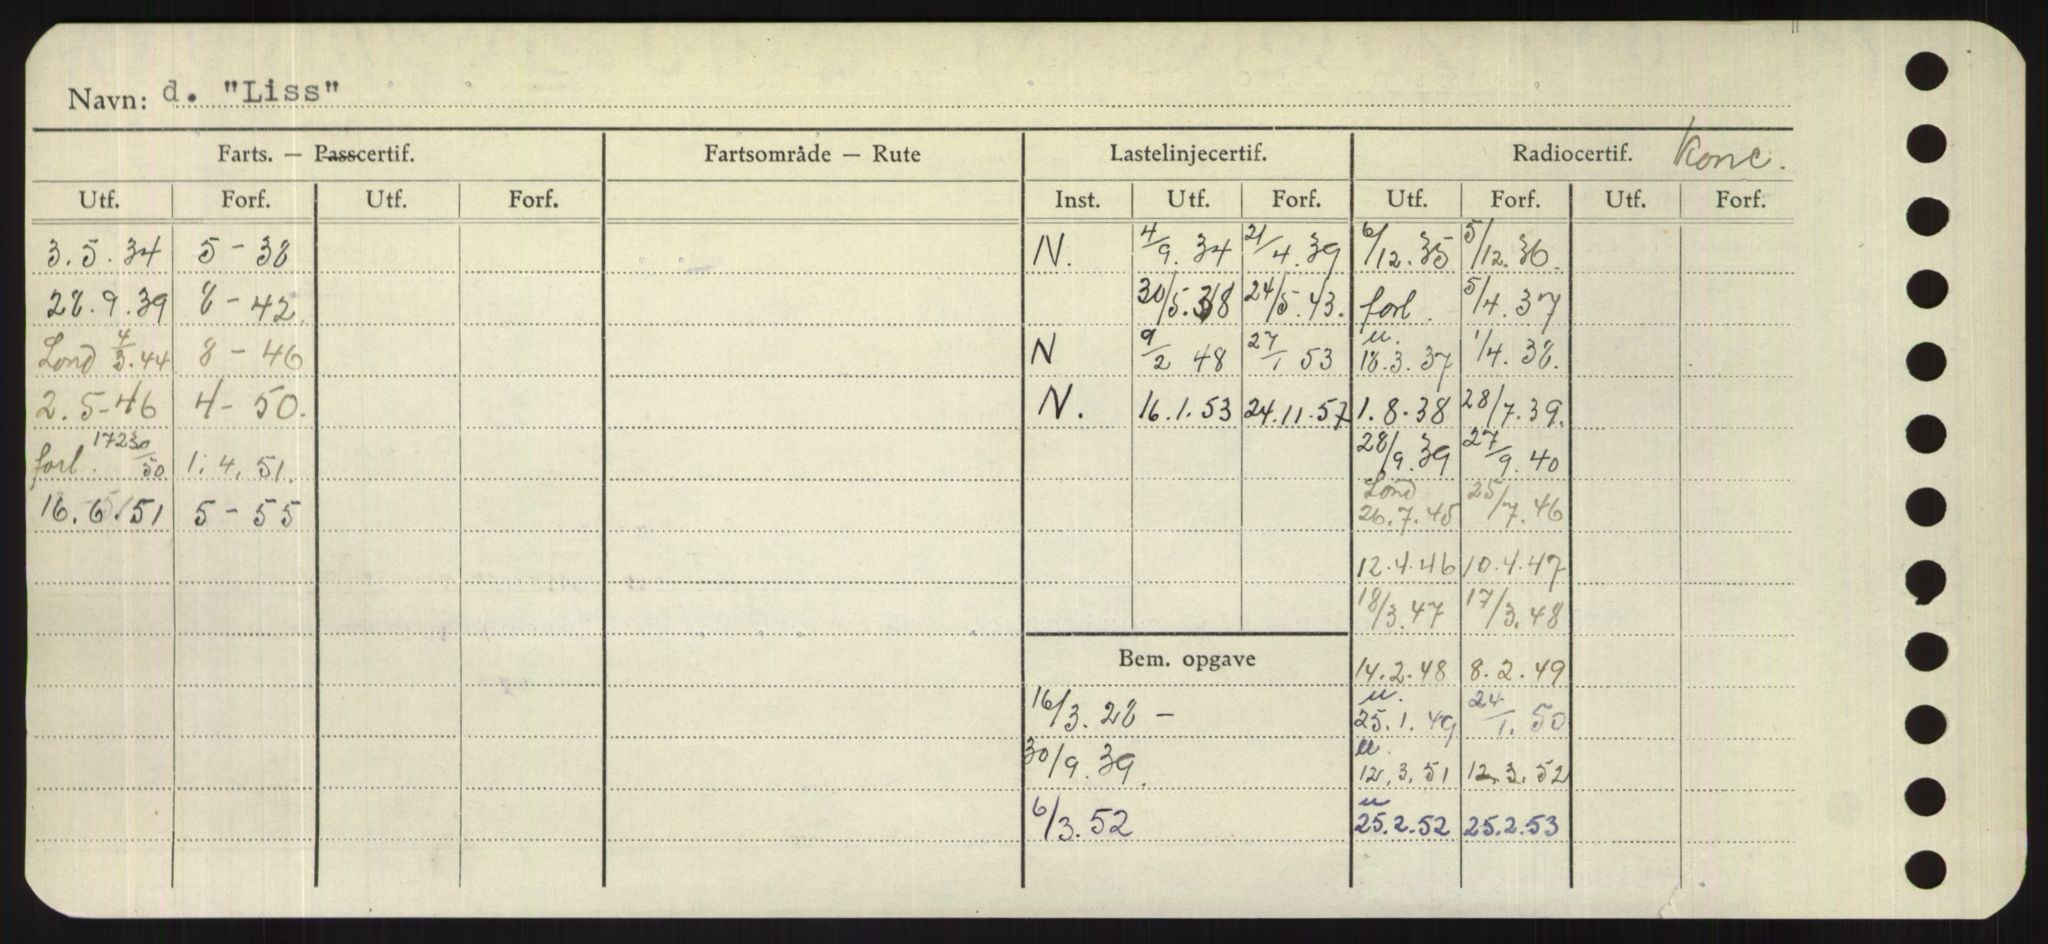 Navn: d. "Liss"
Farts. — Passcertif. Fartsområde — Rute Lastelinjecertif. Radiocertif. Konc.
Utf. Forf. Utf. Forf. Inst. Utf. Forf. Utf. Forf. Utf. Forf.
3.5.34 5-38 N. 4/9.34 21/4.39 6/12.35 5/12.36.
28.9.39 8-42. 30/5.38 24/5.43. forl. 5/4.37
Lond 4/3.44 8-46 N 9/2 48 27/1 53 u. 18.3.37 1/4.38.
2.5-46 4-50. N. 16.1.53 24.11.57 1.8.38 28/7.39.
forl. 50 1.4.51. 28/9.39 27/9.40
16.6.51 5-55 Lond 26.7.45 25/7.46
12.4.46 10.4.47
18/3.47 17/3.48
Bem. opgave 14.2.48 8.2.49
16/3.28 - u. 25.1.49 24/1.50
30/9.39. u. 12.3.51 12.3.52
6/3.52 u 25.2.52 25.2.53